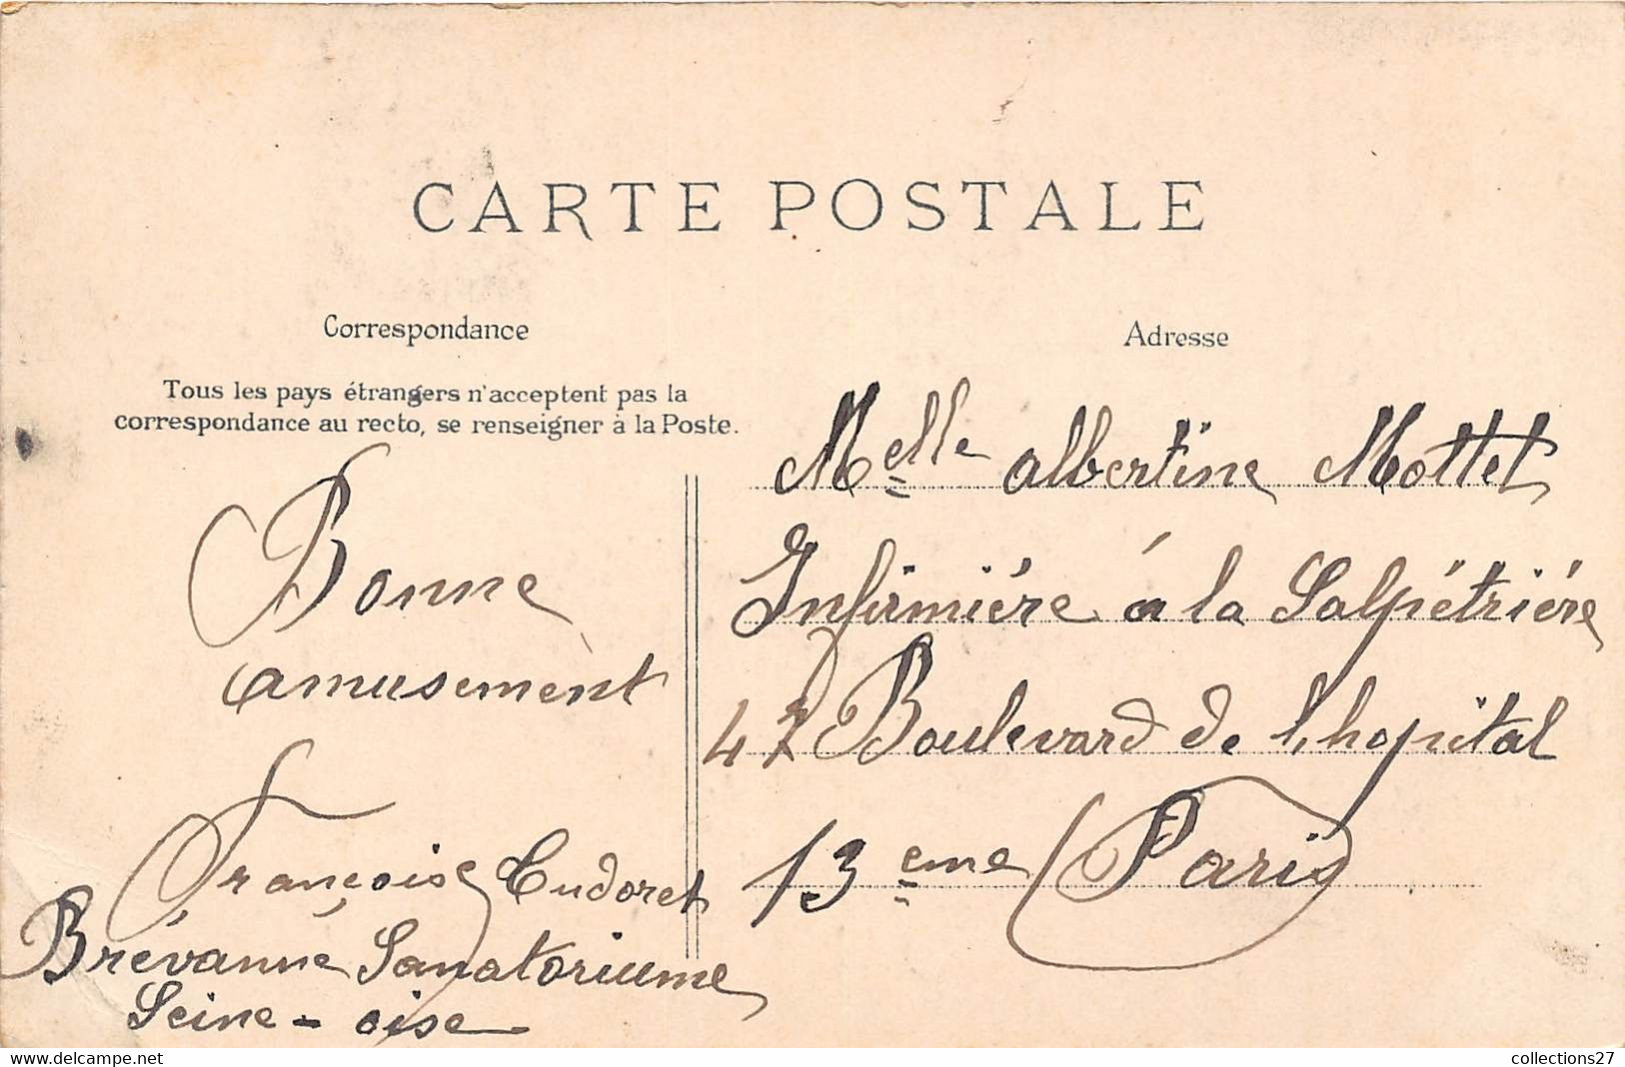 CARTE POSTALE
Correspondance
Tous les pays étrangers n'acceptent pas la
correspondance au recto, se renseigner à la Poste.
Bonne
amusement
Françoise Cudoret
Brévanne Sanatoriume
Seine - oise
Adresse
Melle albertine Mottet
Infirmiére á la Salpétriére
47 Boulevard de l,hopital
13 eme Paris
collections27